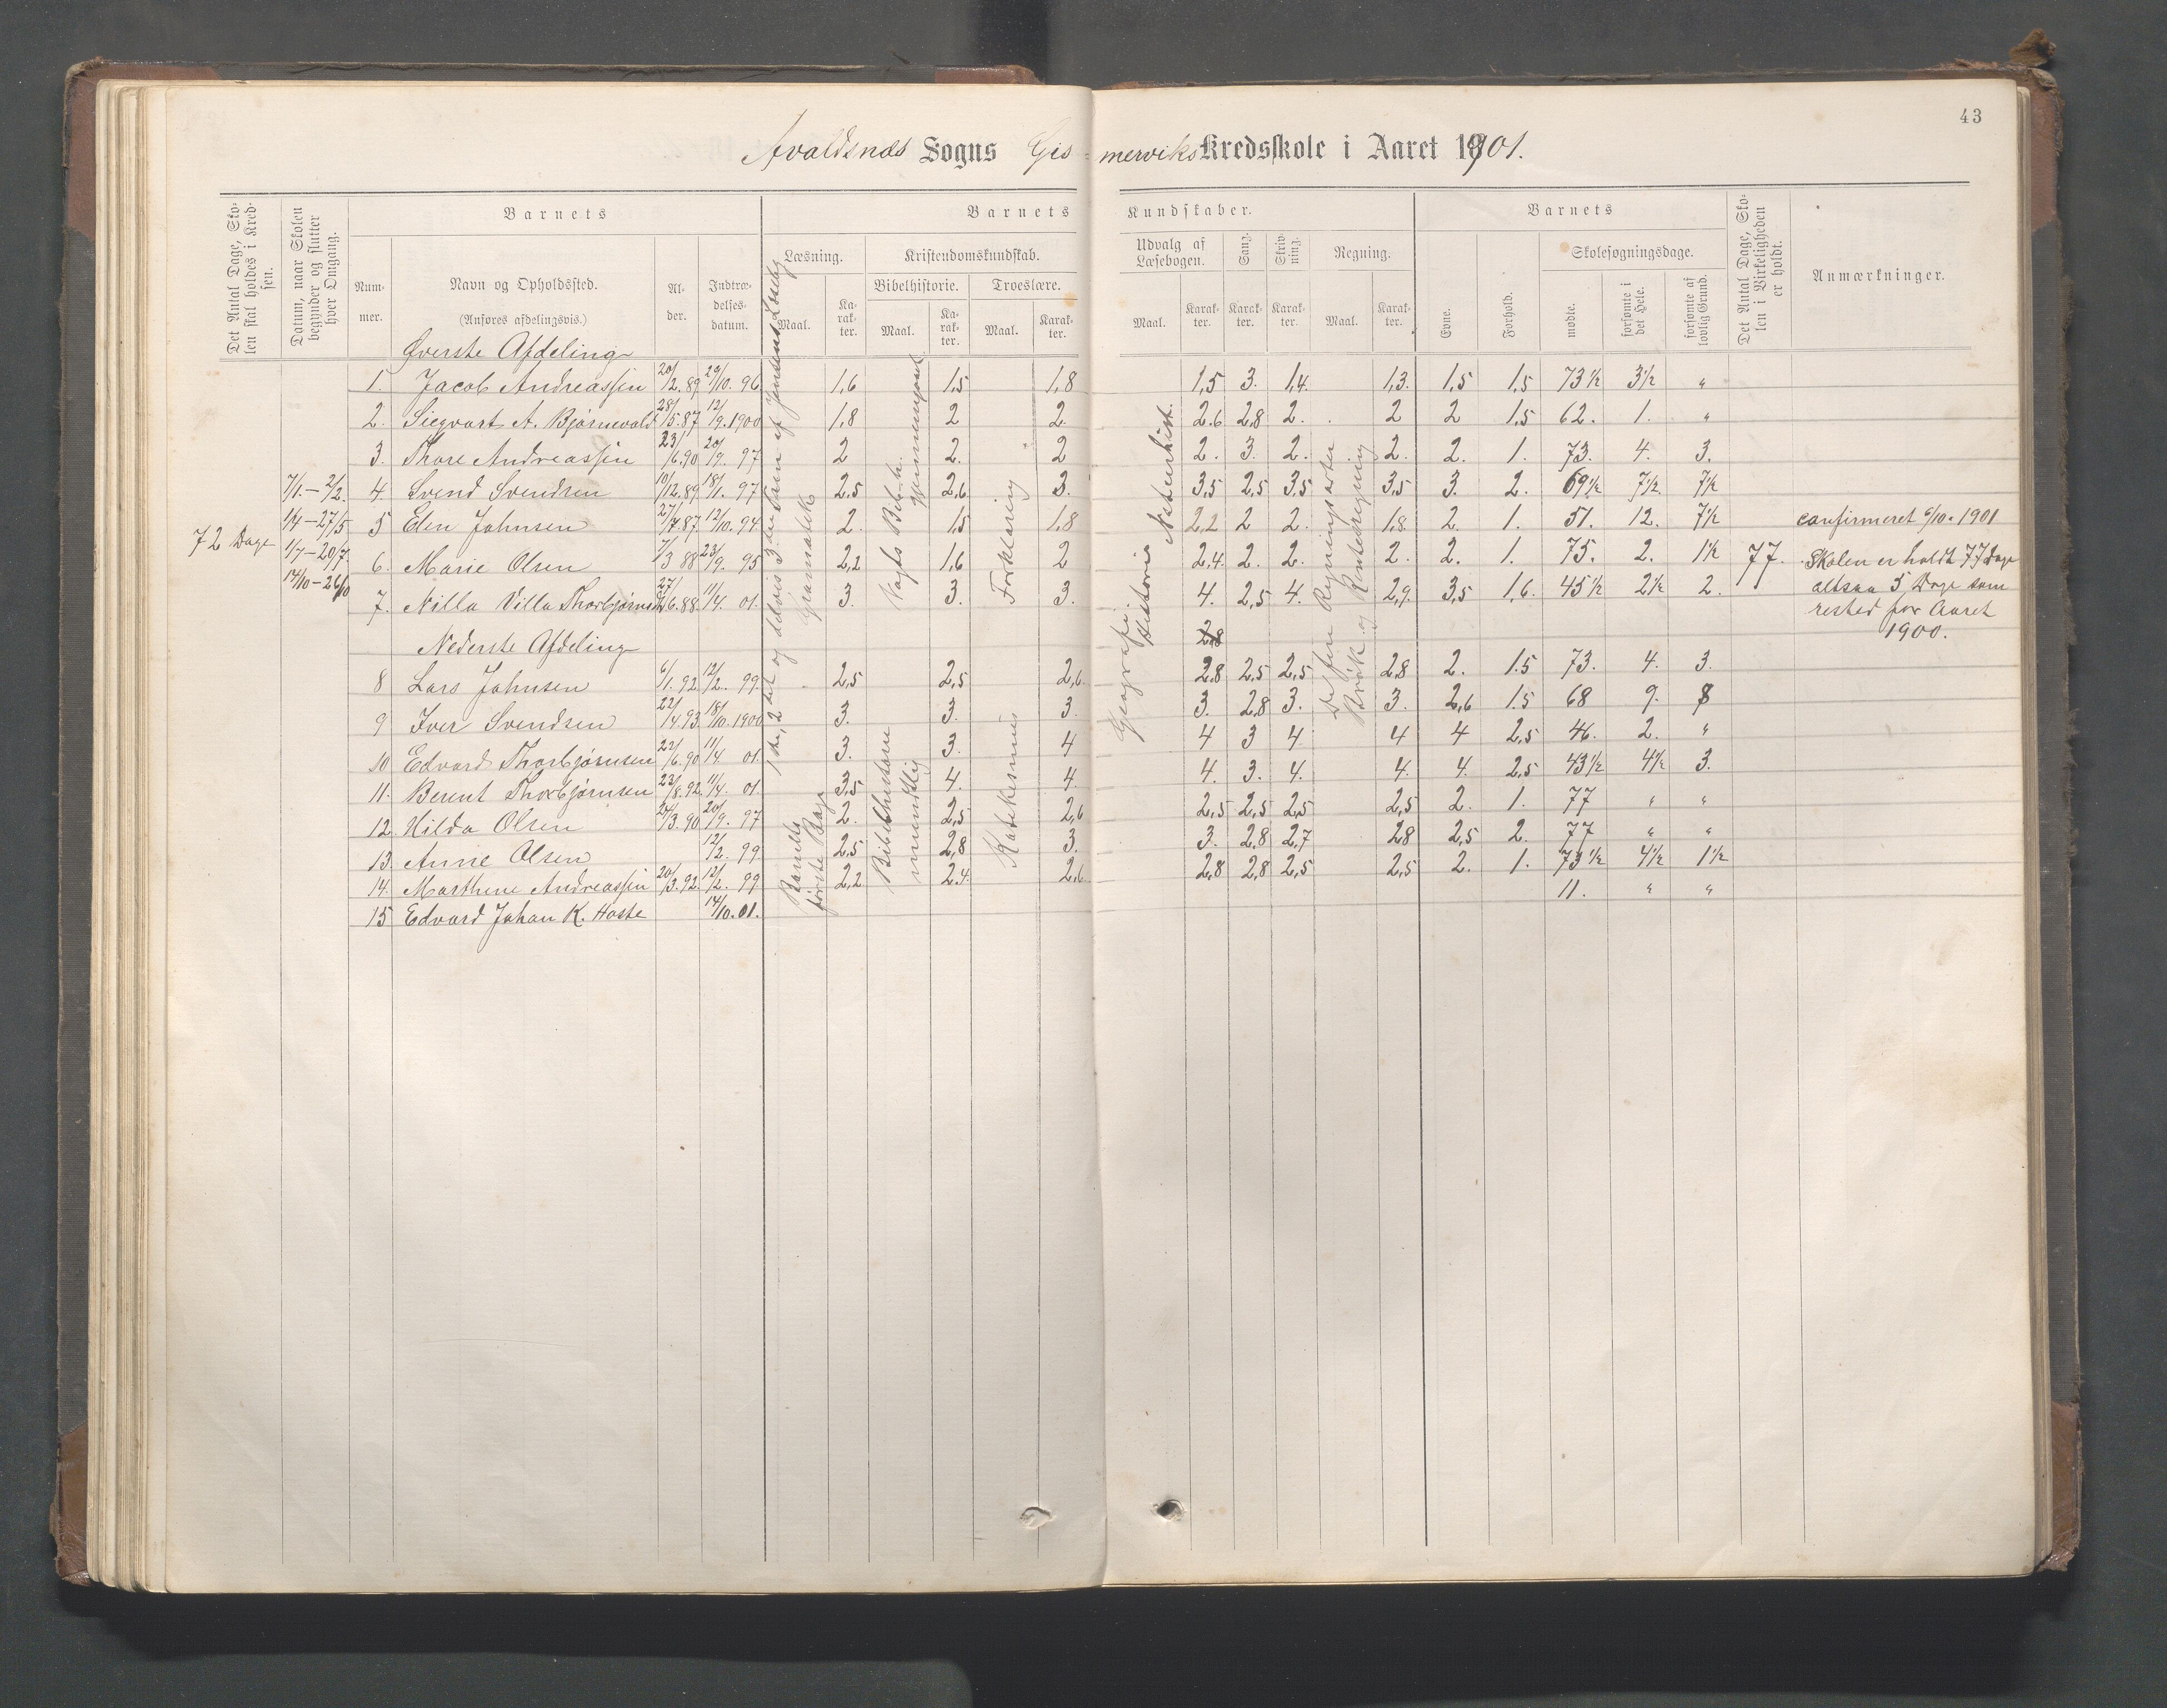 43
Avaldsnæs Sogns Gis-merviks Kredsskole i Aaret 1901.
Det Antal Dage, Skolen skal holdes i Kredsen.
Datum, naar Skolen begynder og slutter hver Omgang.
Barnets
Nummer.
Navn og Opholdssted.
(Anføres afdelingsvis.)
Alder.
Indtrædelsesdatum.
Barnets Kundskaber.
Læsning.
Maal.
Karakter.
Kristendomskundskab.
Bibelhistorie.
Maal.
Karakter.
Troeslære.
Maal.
Karakter.
Udvalg af Læsebogen.
Maal.
Karakter.
Sang.
Karakter.
Skrivning.
Karakter.
Regning.
Maal.
Karakter.
Barnets
Evne.
Forhold.
Skolesøgningsdage.
mødte.
forsømte i det Hele.
forsømte af lovlig Grund.
Det Antal Dage, Skolen i Virkeligheden er holdt.
Anmærkninger.
72 Dage
7/1.-2/2.
1/4-27/5
1/7-20/7.
14/10-26/10
Øverste Afdeling
1. Jacob Andreassen 20/12.89 29/10. 96. 1,6 1,5 1,8 1,5 3. 1,4. 1,3. 1,5 1,5 73½ 3½ "
2. Siegvart A. Bjørnevald 28/5.87 12/9.1900 1,8 2 2. 2.6 2,8 2. 2 2 1,5 62. 1. "
3. Thore Andreassen 23/6.90 20/9. 97 2 2. 2 2. 3. 2. 2. 2. 1. 73. 4. 3.
4. Svend Svendsen 10/12.89 18/1. 97 2,5 2,6 3. 3,5 2,5 3,5 3,5 3. 2. 69½ 7½. 7½
5 Elen Johnsen 27/7.87. 12/10. 94 2. 1,5 1,8 2,2 2 2. 1,8. 2. 1. 51. 12. 7½ confirmeret 6/10-1901
6. Marie Olsen 7/3 88 23/9. 95 2,2 1,6 2 2,4. 2. 2. 2. 2. 1. 75. 2. 1½ 77. Skolen er holdt 77 Dage
7. Nilla Villa Thorbjørnsen 27/6.88. 11/4. 01. 3. 3. 3. 4. 2,5 4. 2,9. 3,5 1,6. 45½ 2½ 2. altsaa 5 Dage som
rested for Aaret
1900.
Nederste Afdeling 2,8
8 Lars Johnsen 6/1. 92 12/2. 99. 2,5 2,5 2,6. 2,8 2,5 2,5 2,8 2. 1.5 73. 4. 3.
9 Iver Svendsen 22/4.93. 18/10.1900 3. 3. 3. 3. 2,8 3. 3. 2,6 1.5 68 9. 8
10 Edvard Thorbjørnsen 22/6.90 11/4. 01. 3. 3. 4 4 3 4 4 4 2,5 46. 2. "
11. Berent Thorbjørnsen 23/8.92. 11/4. 01. 3,5 4. 4. 4. 3. 4. 4. 4. 2,5 43½ 4½ 3.
12 Hilda Olsen 24/3.90 20/9. 97 2. 2,5 2,6 2,5 2,5 2,5 2,5 2. 1. 77 " "
13. Anne Olsen 12/2. 99. 2,5 2,8 3. 3. 2,8 2,7 2,8 2,5 2. 77 " "
14. Marthine Andreassen 20/3.92. 12/2. 99 2,2 2,4. 2,6. 2,8 2,8 2,5 2,5 2. 1. 73½ 4½ 1½
15 Edvard Johan K. Haste 14/10.01. 11. " "
1ste, 2det og delvis 3die Trin af Jensens Læsebog
Gramatik
første Bage
Vogts Bibelh.
gjennemgaaet
Bibelhistorie
mundtlig
Forklaring
Katekismus
Geografi
Historie
Naturhist.
De fire Regningsarter
Brøk og Renteregning